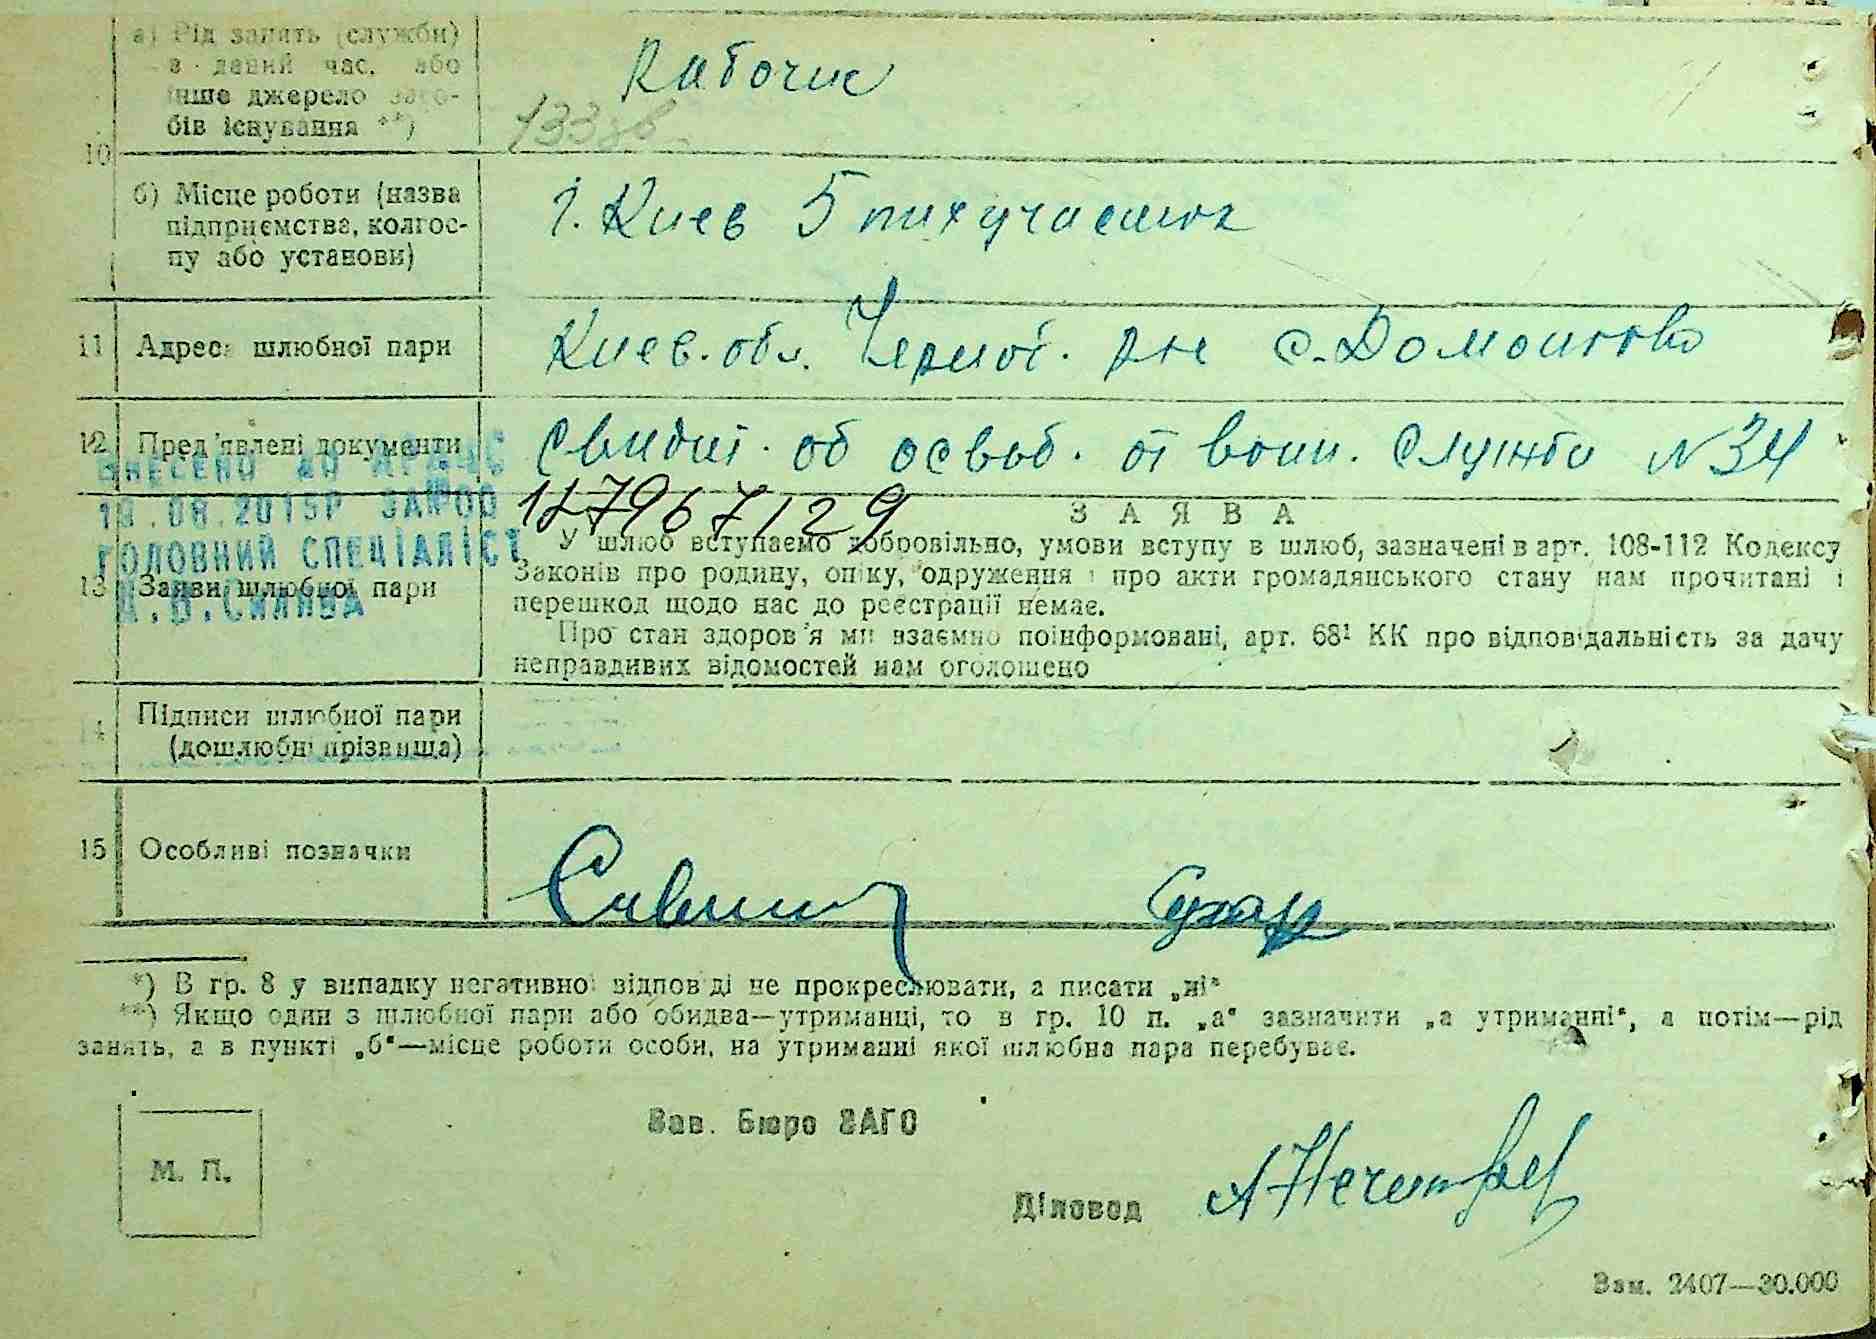 а) Рід занять (служби)
в даний час, або
інше джерело засо-
бів існування **)
Рабочий
10
б) Місце роботи (назва
підприємства, колгос-
пу або установи)
г. Киев 5
11 Адреса шлюбної пари
Киев. обл. с. Домонтово
12 Пред'явлені документи
Свидет. об освоб. от воин. службы № 34
ВНЕСЕНО ДО ДРАЦС
19.08.2015Р
ГОЛОВНИЙ СПЕЦІАЛІСТ
13 Заяви шлюбної пари
ЗАЯВА
У шлюб вступаємо добровільно, умови вступу в шлюб, зазначені в арт. 108-112 Кодексу
Законів про родину, опіку, одруження і про акти громадянського стану нам прочитані і
перешкод щодо нас до реєстрації немає.
Про стан здоров'я ми взаємно поінформовані, арт. 68¹ КК про відповідальність за дачу
неправдивих відомостей нам оголошено
14 Підписи шлюбної пари
(дошлюбні прізвища)
15 Особливі позначки
*) В гр. 8 у випадку негативної відповіді не прокреслювати, а писати „ні“
**) Якщо один з шлюбної пари або обидва—утриманці, то в гр. 10 п. „а“ зазначити „а утриманні“, а потім—рід
занять, а в пункті „б“—місце роботи особи, на утриманні якої шлюбна пара перебуває.
Зав. Бюро ЗАГС
М. П.
Діловод
Зам. 2407—30.000